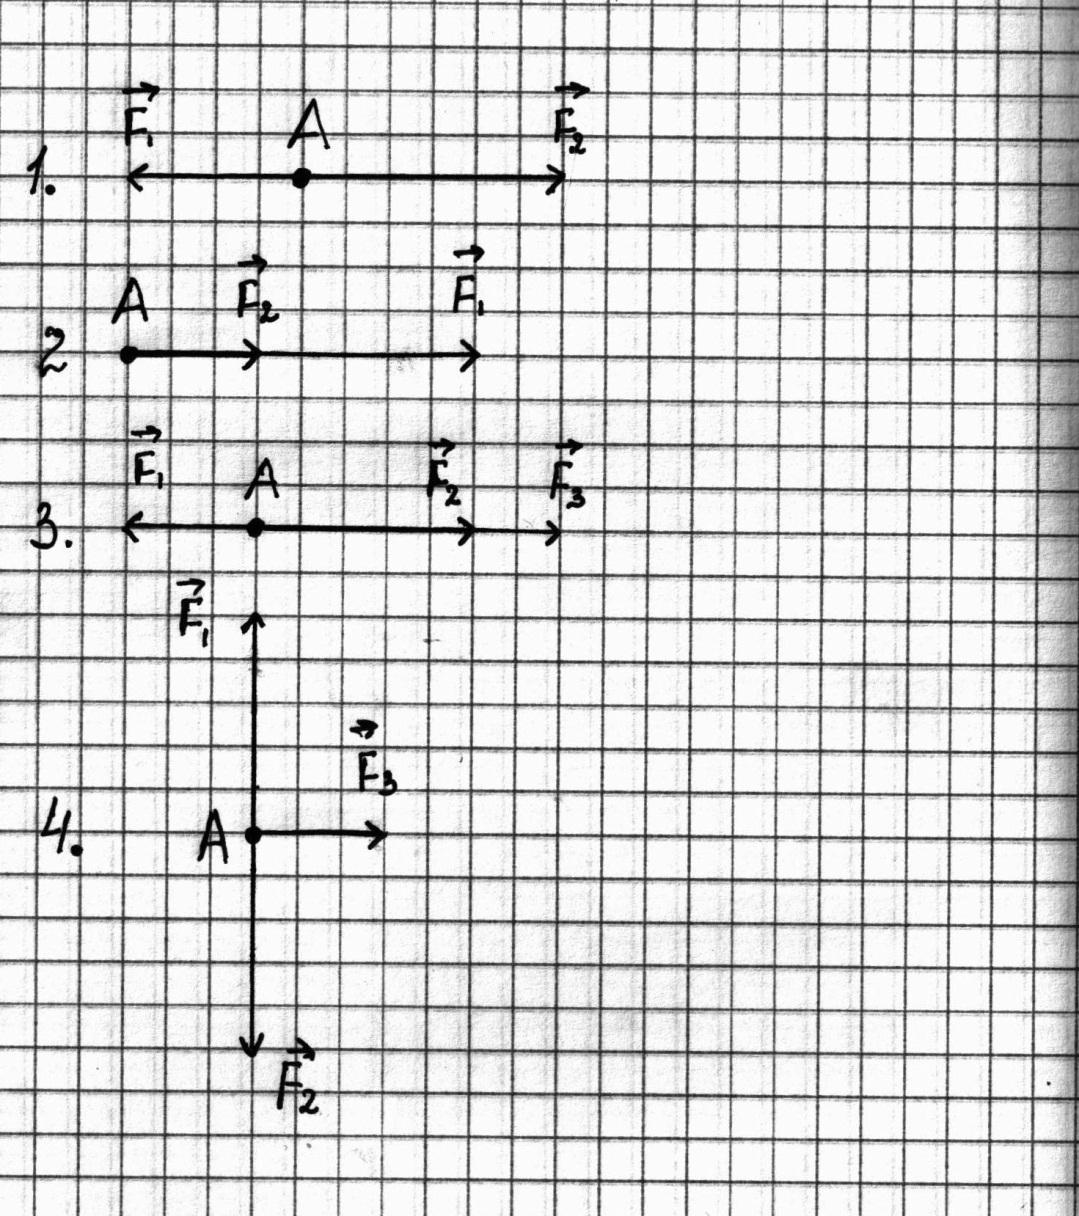 F₁ A F₂
1.
A F₂ F₁
2
F₁ A F₂ F₃
3.
F₁
F₃
4. A
F₂